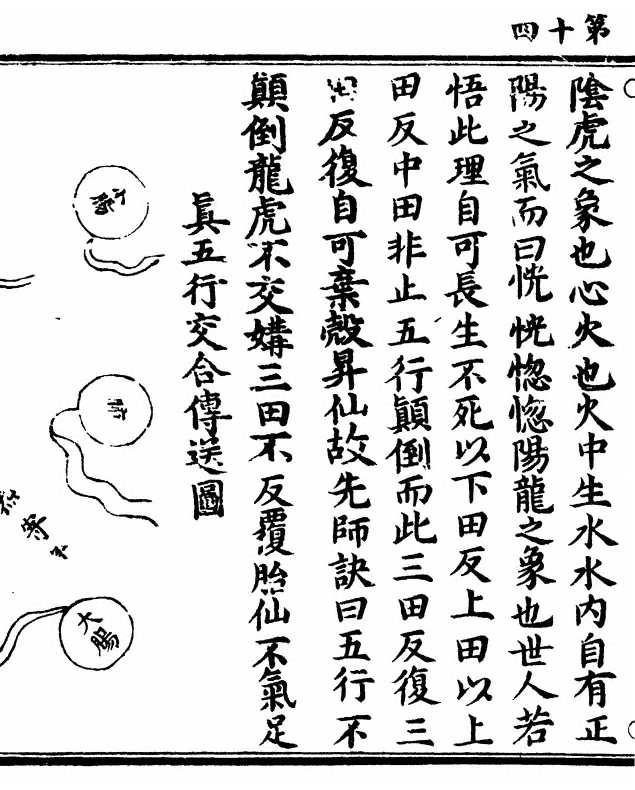 第十四
陰虎之象也心火也火中生水水內自有正
陽之氣而曰恍恍惚惚陽龍之象也世人若
悟此理自可長生不死以下田反上田以上
田反中田非止五行顛倒而此三田反復三
田反復自可棄殼昇仙故先師訣曰五行不
顛倒龍虎不交媾三田不反覆胎仙不氣足
眞五行交合傳送圖
大腸